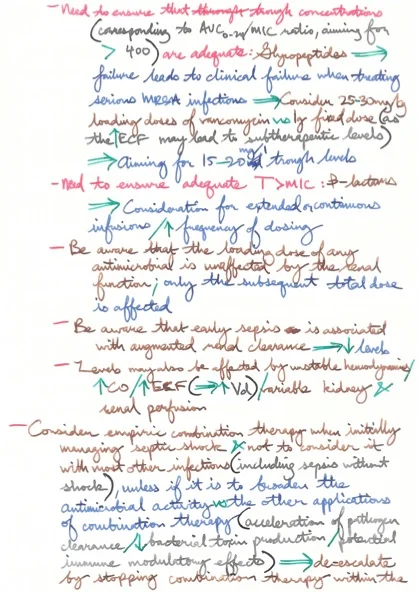 - Need to ensure that through trough concentrations
(corresponding to AUC0-24/MIC ratio, aiming for
> 400) are adequate: Glycopeptides →
failure leads to clinical failure when treating
serious MRSA infections → Consider 25-30mg/kg
loading doses of vancomycin vs 1g fixed dose (as
the ↑ECF may lead to subtherapeutic levels)
→ Aiming for 15-20 mg/l trough levels
- Need to ensure adequate T>MIC: β-lactams
→ Consideration for extended or continuous
infusions / ↑ frequency of dosing
- Be aware that the loading dose of any
antimicrobial is unaffected by the renal
function; only the subsequent total dose
is affected
- Be aware that early sepsis is associated
with augmented renal clearance → ↓ levels
- Levels may also be affected by unstable hemodynamics/
↑CO/↑ECF (→↑Vd)/variable kidney &
renal perfusion
- Consider empiric combination therapy when initially
managing septic shock & not to consider it
with most other infections (including sepsis without
shock), unless if it is to broaden the
antimicrobial activity vs the other applications
of combination therapy (acceleration of pathogen
clearance/↓ bacterial toxin production/potential
immune modulatory effects) → de-escalate
by stopping combination therapy within the